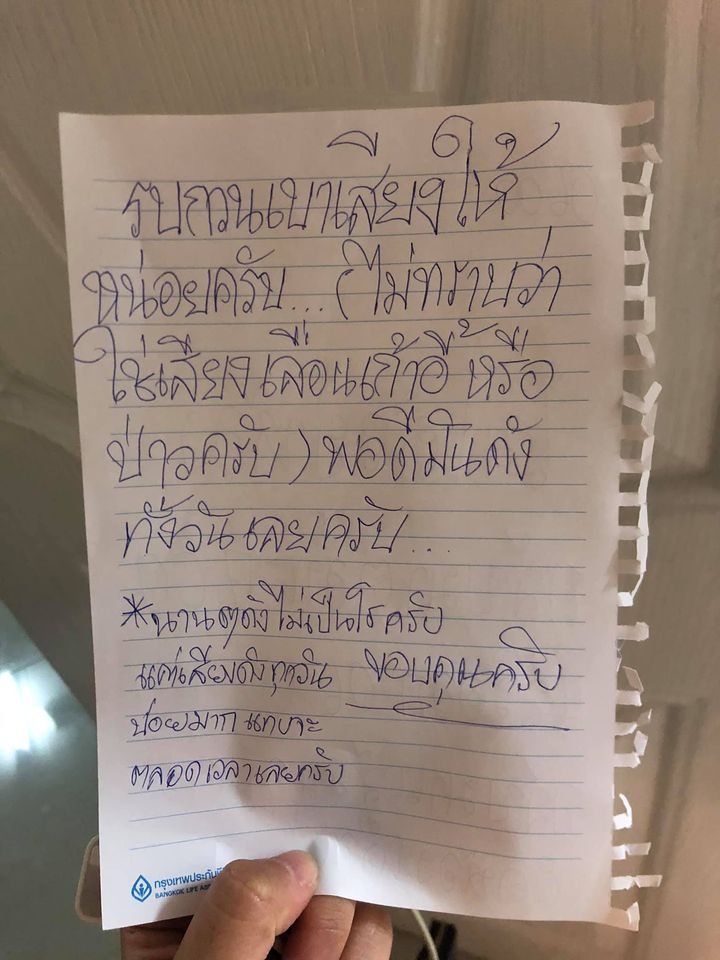 รบกวนเบาเสียงให้
หน่อยครับ... (ไม่ทราบว่า
ใช่เสียงเลื่อนเก้าอี้ หรือ
ป่าวครับ) พอดีมันดัง
ทั้งวันเลยครับ...
*นานๆดังไม่เป็นไรครับ
แต่เสียงดังทุกวัน ขอบคุณครับ
บ่อยมาก แทบจะ
ตลอดเวลาเลยครับ
กรุงเทพประกัน
BANGKOK LIFE